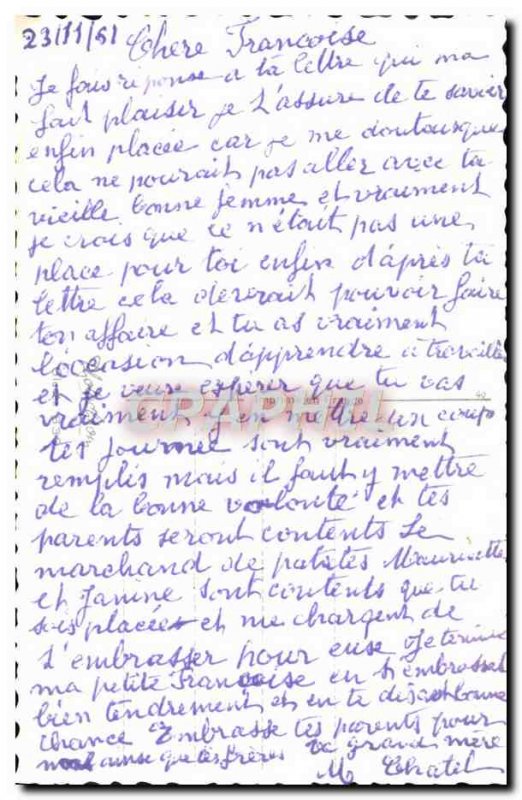 23/11/61 Chere Francoise
Je fais reponse a ta lettre qui ma
fait plaisir je t'assure de te savoir
enfin placée car je me doutais que
cela ne pourait pas aller avec ta
vieille bonne femme et vraiment
je crois que ce n'était pas une
place pour toi enfin d'après ta
lettre cela devrait pouvoir faire
ton affaire et tu as vraiment
l'occasion d'apprendre a travailler
et je veux espérer que tu vas
vraiment y en mettre un coup
tes journee sont vraiment
remplis mais il faut y mettre
de la bonne volonté et tes
parents seront contents Le
marchand de patates Mauricette
et Janine sont contents que tu
sois placée et me chargent de
t'embrasser pour eux Je termine
ma petite Françoise en t'embrassant
bien tendrement et en te disant bonne
chance Embrasse tes parents pour
moi ainsi que tes frères Ta grand mère
M Chatel
CPAPHIL